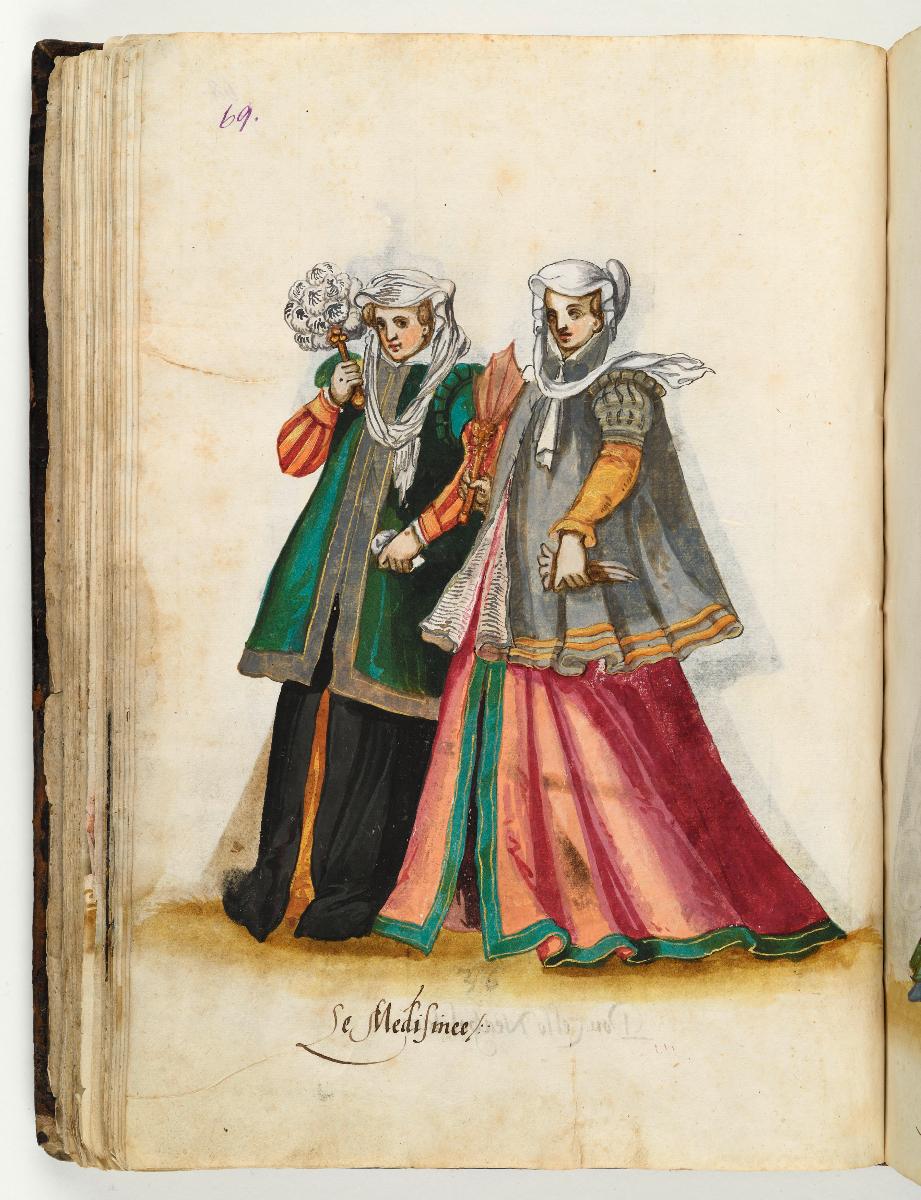 69.
Se Medisinee/.
36